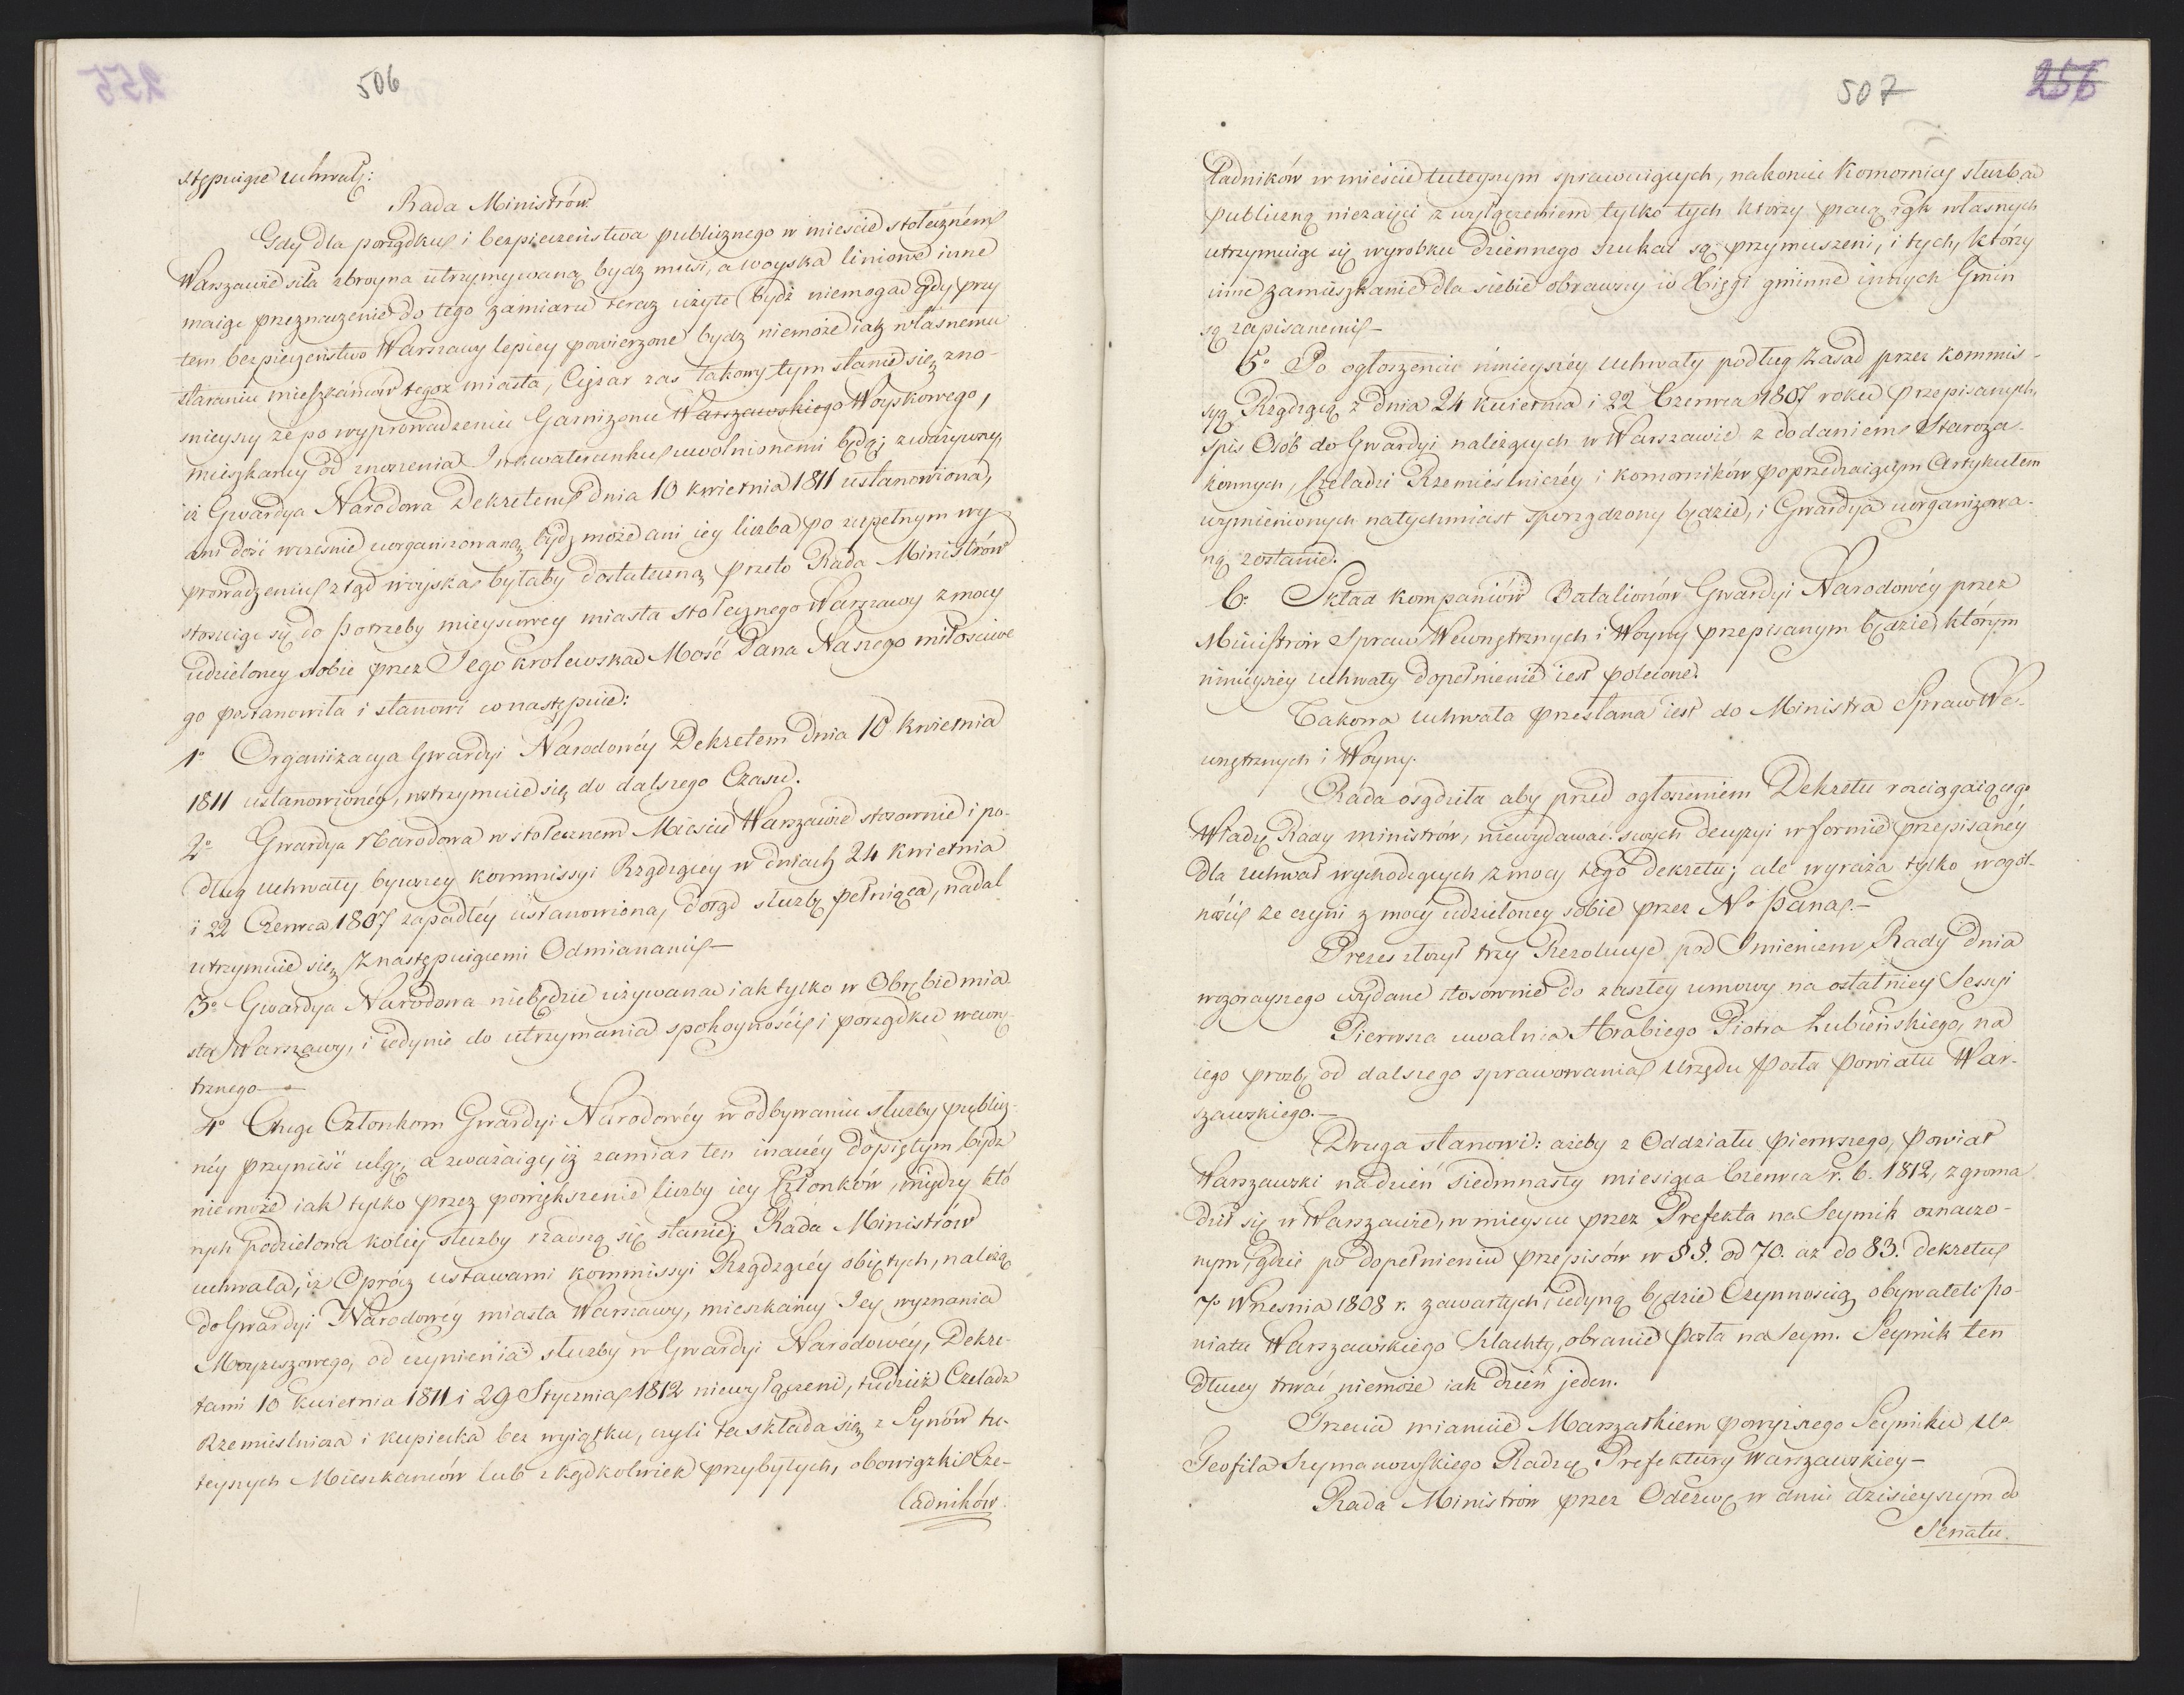 506
stępuiące uchwały:
Rada Ministrów.
Gdy dla porządku i bezpieczeństwa publicznego w mieście stołeczném
Warszawie siła zbroyna utrzymywaną bydz musi, a woyska liniowe inne
maiąc przeznaczenie do tego zamiaru teraz użyte bydź niemogą gdy przy
tem bezpieczeństwo Warszawy lepiey powierzone bydz niemoże iak własnemu
staraniu mieszkańców tegoż miasta, Ciężar zaś takowy tym stanie się zno-
śnieyszy że po wyprowadzeniu Garnizonu Warszawskiego Woyskowego,
mieszkańcy od znoszenia Inkwaterunku uwolnionemi będą; zważywszy,
iż Gwardya Narodowa Dekretem dnia 10 kwietnia 1811 ustanowiona,
ani dość wcześnie uorganizowaną bydź może ani iey liczba po zupełnym wy-
prowadzeniu ztąd woyska byłaby dostateczną przeto Rada Ministrów
stosuiąc się do potrzeby mieyscowey miasta stołecznego Warszawy z mocy
udzieloney sobie przez Jego krolewska Mość Pana Naszego miłościwe
go postanowiła i stanowi co następuie:
1o Organizacya Gwardyi Narodowéy Dekretem dnia 10 kwietnia
1811 ustanowionéy, wstrzymuie się do dalszego Czasu.
2o Gwardya Narodowa w stołecznem Mieście Warszawie stosownie i po-
dług uchwały bywszey kommissyi Rządzącey w dniach 24 kwietnia
i 22 Czerwca 1807 zapadłéy ustanowiona, dotąd służbę pełniąca, nadal
utrzymuie się z następuiącemi Odmianami –
3o Gwardya Narodowa niebędzie używana iak tylko w Obrębie mia
sta Warszawy, i iedynie do utrzymania spokoyności i porządku wewnę-
trznego –
4o Chcąc Członkom Gwardyi Narodowéy w odbywaniu służby publicz-
néy przynieść ulgę, a zważaiąc, iż zamiar ten inaczéy dopiętym bydz
niemoże iak tylko przez powiększenie liczby iey Członków, między któ
rych podzielona koléy służby rzadszą się stanie; Rada Ministrów
uchwala, iż Oprócz ustawami kommissyi Rządzącéy obiętych, należą
do Gwardyi Narodowéy miasta Warszawy, mieszkańcy Jey wyznania
Moyżeszowego, od czynienia służby w Gwardyi Narodowéy, Dekre-
tami 10 kwietnia 1811 i 29 Stycznia 1812 niewyłączeni, tudzież Czeladz
Rzemieślnicza i kupiecka bez wyiątku, czyli ta składa się z Synów tu-
teyszych Mieszkańców lub zkądkolwiek przybyłych, obowiązki Cze-
ladników
507
256
ladników w mieście tuteyszym sprawuiących, nakoniec Komornicy służbą
publiczną niezaięci z wyłączeniem tylko tych którzy pracą rąk własnych
utrzymuiąc się wyrobku dziennego szukać są przymuszeni, i tych, którzy
inne zamieszkanie dla siebie obrawszy w Xięgi gminne innych Gmin
są zapisanemi –
5o Po ogłoszeniu ninieyszéy uchwały podług Zasad przez kommis-
syą Rządzącą z dnia 24 kwietnia i 22 Czerwca 1807 roku przepisanych,
spis Osób do Gwardyi należących w Warszawie z dodaniem Staroza-
konnych, Czeladzi Rzemieślniczéy i komorników poprzedzaiącym Artykułem
wymienionych natychmiast sporządzony będzie, i Gwardya uorganizowa-
ną zostanie.
6o Skład kompaniów Batalionów Gwardyi Narodowéy przez
Ministrów Spraw Wewnętrznych i Woyny przepisanym będzie, którym
ninieyszéy uchwały dopełnienie iest polecone.
Takowa uchwała przesłana iest do Ministra Spraw We-
wnętrznych i Woyny.
Rada osądziła aby przed ogłoszeniem Dekretu rozciągaiącego
Władzę Rady ministrów, niewydawać swych decyzyi w formie przepisanéy
dla uchwał wychodzących z mocy tego dekretu; ale wyraża tylko w ogól-
ności że czyni z mocy udzieloney sobie przez No Pana. –
Prezes złożył trzy Rezolucye pod Imieniem Rady dnia
wczorayszego wydane stosownie do zaszłey umowy na ostatniey Sessyi
Pierwsza uwalnia Hrabiego Piotra Łubieńskiego, na
iego prozbę od dalszego sprawowania Urzędu Posła Powiatu War-
szawskiego. –
Druga stanowi: ażeby z Oddziału pierwszego, Powiat
Warszawski na dzień siedmnasty miesiąca Czerwca r. b. 1812, zgroma
dził się w Warszawie, w mieyscu przez Prefekta na Seymik oznaczo-
nym, gdzie po dopełnieniu przepisów w §§. od 70. aż do 83. dekretu
7o Wrześnią 1808 r. zawartych, iedyną będzie Czynnością obywateli po-
wiatu Warszawskiego Szlachty, obranie Posła na Seym. Seymik ten
dłużey trwać niemoże iak dzień jeden.
Trzecia mianuie Marszałkiem powyższego Seymiku Uo
Teofila Szymanowskiego Radzcę Prefektury Warszawskiey –
Rada Ministrów przez Odezwę w dniu dzisieyszym do
Senatu.